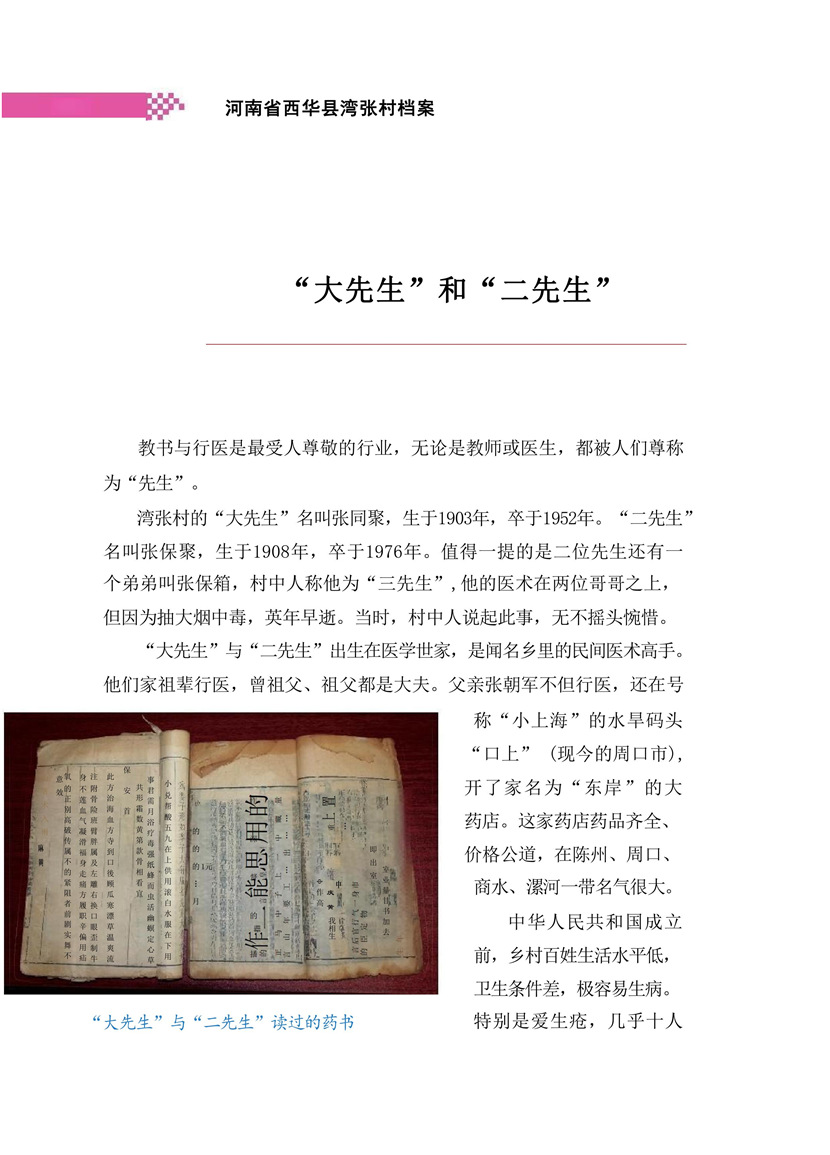 河南省西华县湾张村档案
“大先生”和“二先生”
教书与行医是最受人尊敬的行业，无论是教师或医生，都被人们尊称
为“先生”。
湾张村的“大先生”名叫张同聚，生于1903年，卒于1952年。“二先生”
名叫张保聚，生于1908年，卒于1976年。值得一提的是二位先生还有一
个弟弟叫张保箱，村中人称他为“三先生”,他的医术在两位哥哥之上，
但因为抽大烟中毒，英年早逝。当时，村中人说起此事，无不摇头惋惜。
“大先生”与“二先生”出生在医学世家，是闻名乡里的民间医术高手。
他们家祖辈行医，曾祖父、祖父都是大夫。父亲张朝军不但行医，还在号
称“小上海”的水旱码头
“口上” (现今的周口市),
开了家名为“东岸”的大
药店。这家药店药品齐全、
价格公道，在陈州、周口、
商水、漯河一带名气很大。
中华人民共和国成立
前，乡村百姓生活水平低，
卫生条件差，极容易生病。
特别是爱生疮，几乎十人
小兑搭酸五九在上供用滚白水服在下用
保安首
作一能思用的
上置
“大先生”与“二先生”读过的药书